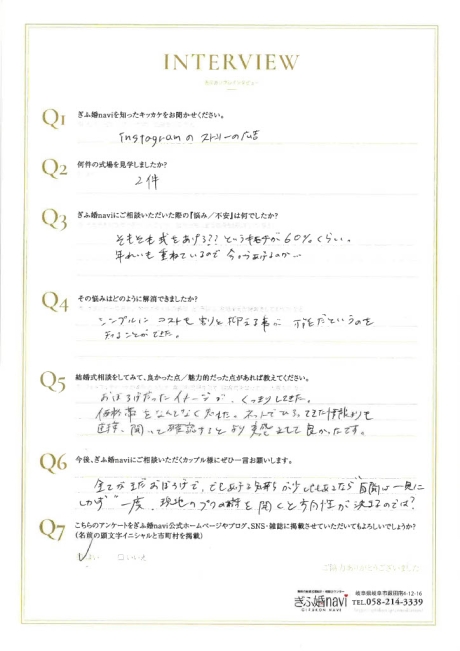 INTERVIEW
Q1 ぎふ婚naviを知ったキッカケをお聞かせください。
Instagramの ストーリーの広告
Q2 何件の式場を見学しましたか?
2件
Q3 ぎふ婚naviにご相談いただいた際の『悩み/不安』は何でしたか?
そもそも式をあげる?? という気持ちが60%くらい。
年れいも重ねているので 今さらあげるのか…
Q4 その悩みはどのように解消できましたか?
シンプルに コストを 割りと抑える事が 可能だというのを
知ることができた。
Q5 結婚式相談をしてみて、良かった点/魅力的だった点があれば教えてください。
おぼろげだった イメージが、くっきりしてきた。
価格帯を なんとなく 知れた。ネットでひろってきた情報よりも
直接、聞いて確認すると より 実感 もてて 良かったです。
Q6 今後、ぎふ婚naviにご相談いただくカップル様にぜひ一言お願いします。
全てがまだ おぼろげで、でもあげる気持ちが少しでもあるなら"百聞は一見に
しかず" 一度、現地のプロの話を 聞くと 方向性が 決まるのでは?
Q7 こちらのアンケートをぎふ婚navi公式ホームページやブログ、SNS・雑誌に掲載させていただいてもよろしいでしょうか?
(名前の頭文字イニシャルと市町村を掲載)
はい □いいえ
ご協力ありがとうございました
ぎふ婚navi
GIFUKON NAVI
TEL.058-214-3339